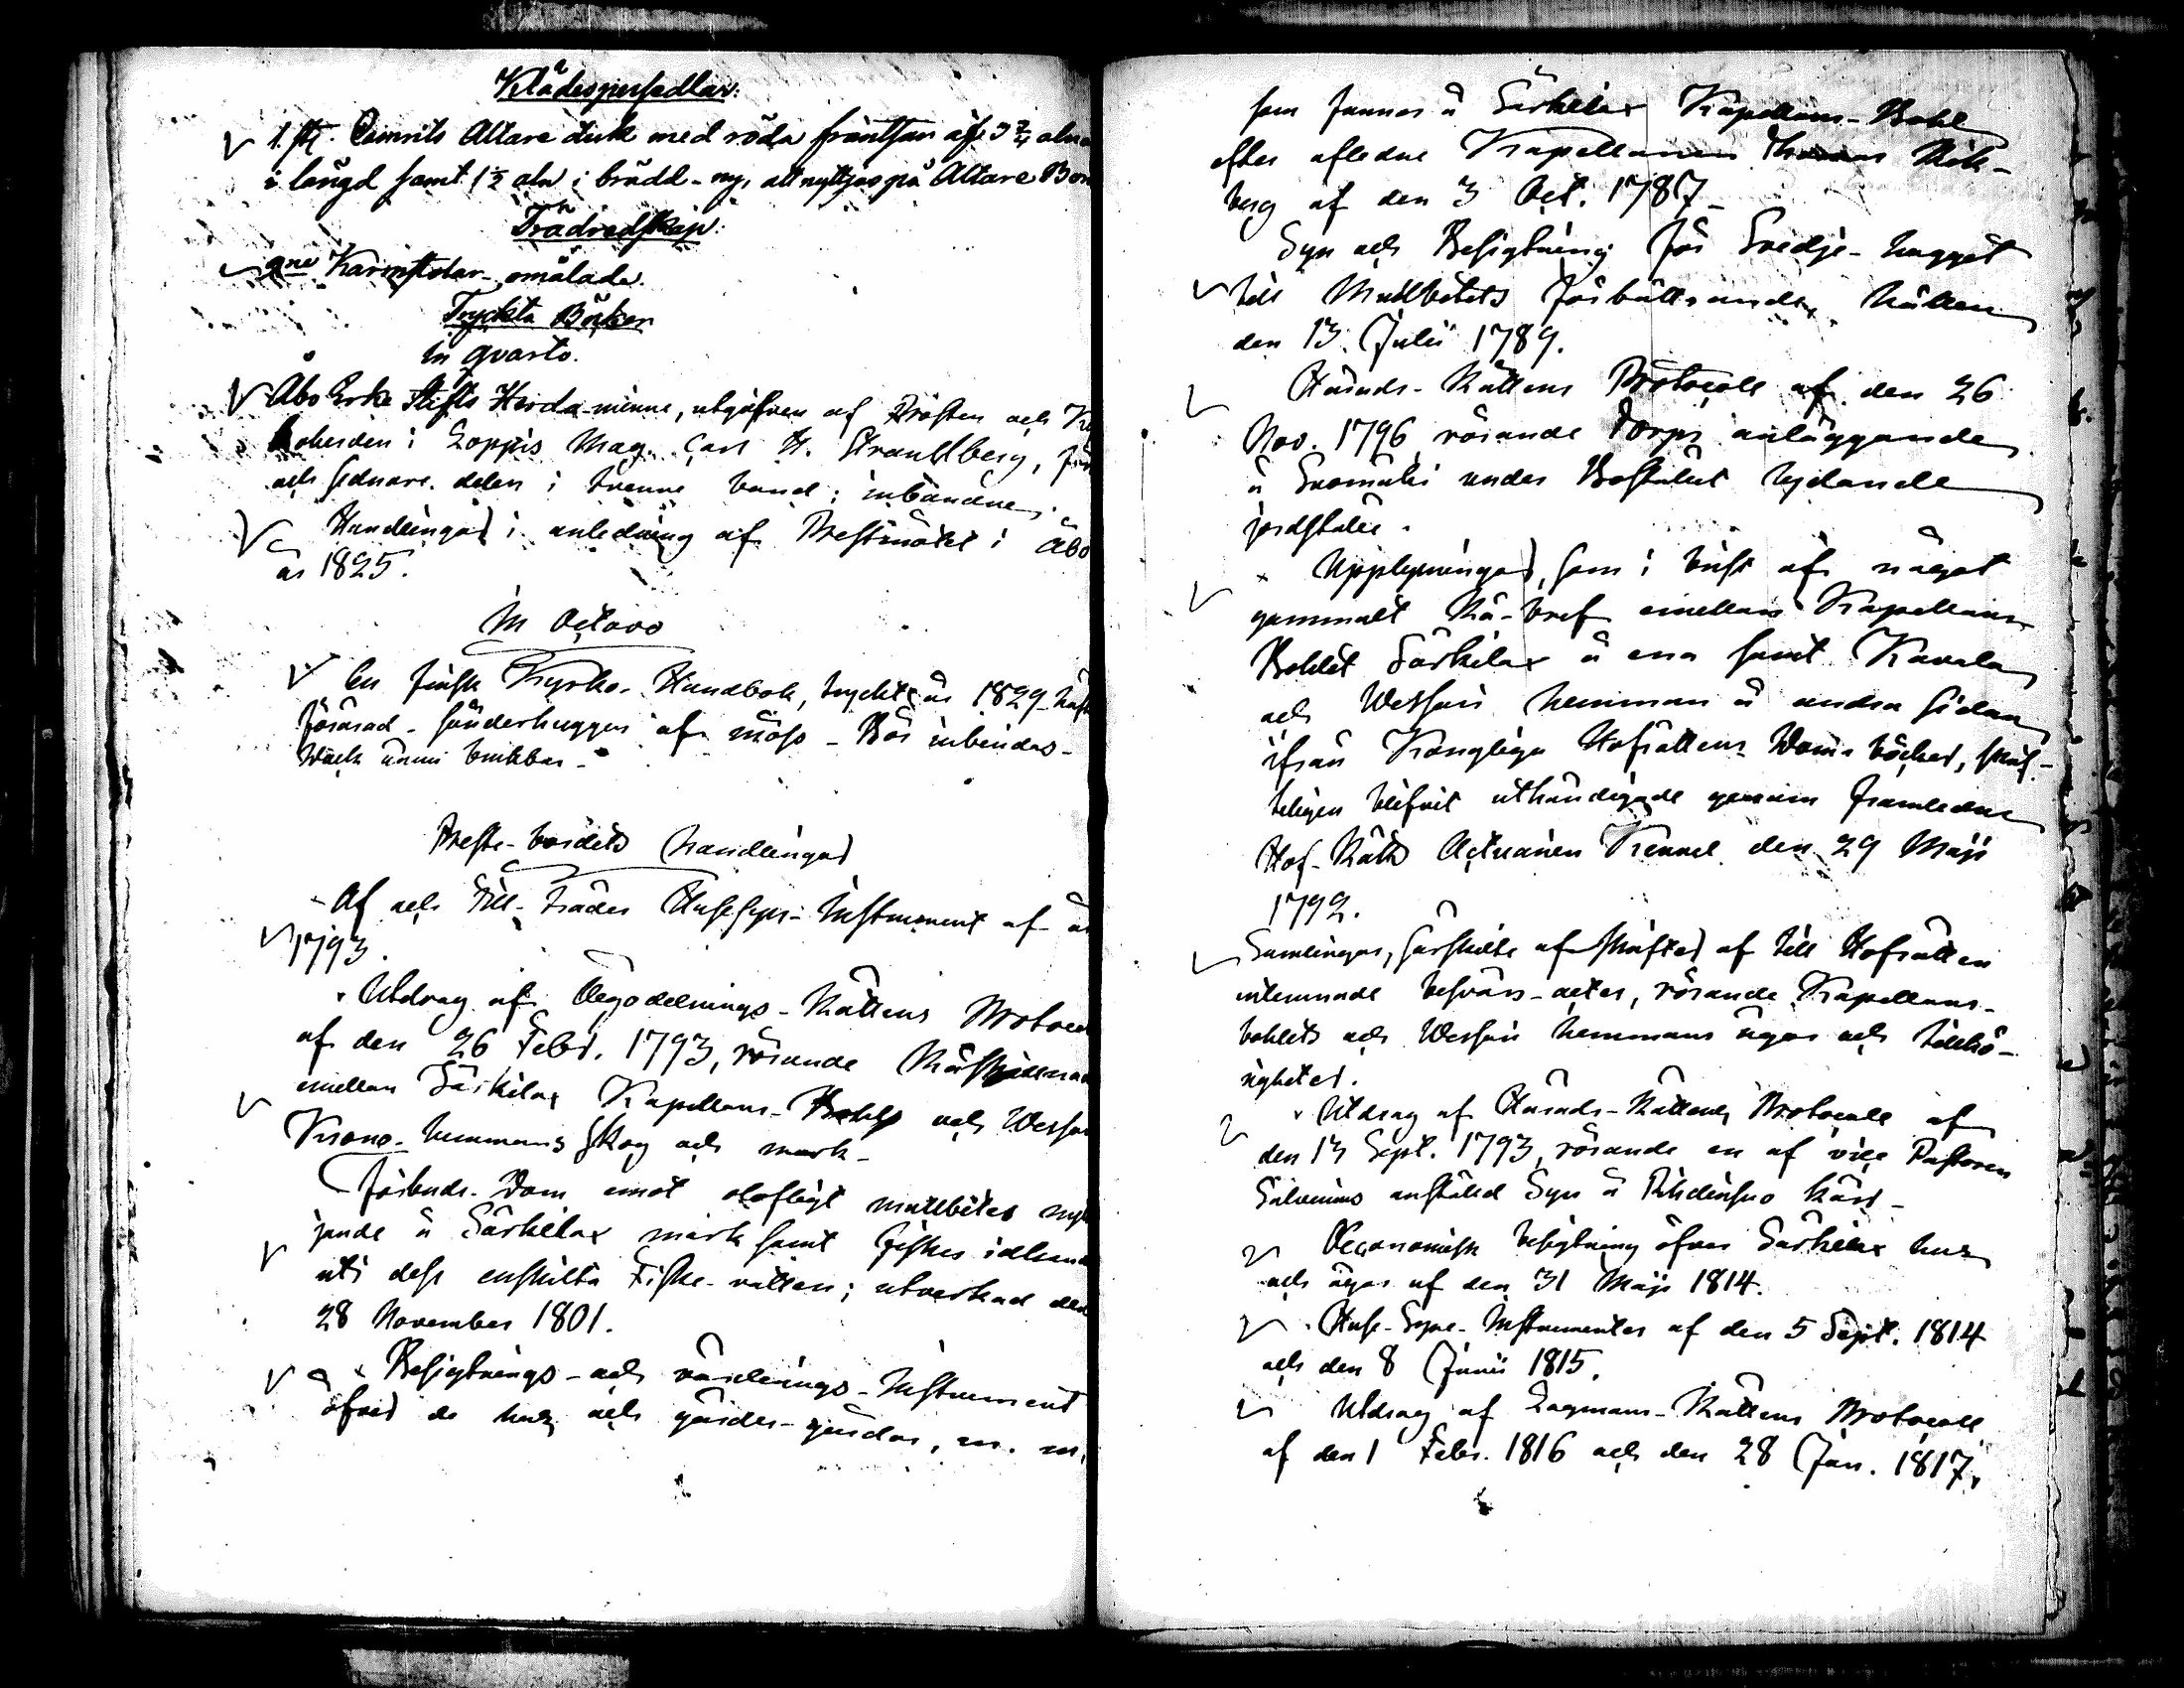 Klädespersedlar.
1. st. Camrits Altare duk med röda fräntsar af 3 3/4 alna
i längd samt 1 1/2 aln i brädd - ny, att nyttjas på Altare Bor
Trädredskap.
2ne Karmstolar omålade.
Tryckta Böcker
in qvarto.
Åbo Erke Stifts Herda-minne, utgifven af Prosten och Ky
koherden i Loppis Mag. Carl H. Strandberg, för
och sednare delen i tvenne band; inbandne.
Handlingar i anledning af Prestmötet i Åbo
år 1825.
In Octavo
En finsk Kyrko-Handbok, tryckt år 1829 häft
förärad - sönderhuggen af möss - Bör inbindas -
dock ännu brukbar -
Preste-bordets handlingar
Af och Till-trädes Husesyns-Instrument af år
1793.
Utdrag af Ägodelnings-Rättens Protocol
af den 26 Febr. 1793, rörande Råskillnad
emellan Särkilax Kapellans-Bohl och Wessari
Krono-hemmans skog och mark -
Förbuds-Dom emot olofligt mullbetes nytt
jande å Särkilax mark samt fiskes idkande
uti dess enskilta Fiske-vatten; utverkad den
28 November 1801.
Besigtnings- och värderings-Instrument
öfver de hus och gärdes-gårdar, m. m.
som funnos å Särkilax Kapellans-Bohl
efter afledne Kapellanen Thomas Rick-
berg af den 3 Oct. 1787 -
Syn och Besigtning för Svedje-hygget
till Mullbetets förbättrande, hållen
den 13. Julii 1789.
Härads-Rättens Protocoll af den 26
Nov. 1796 rörande Torps anläggande
å Suomälä under Bostället lydande
jordställe.
Upplysningar, som i brist af något
gammalt Rå-bref emellan Kapellans
Bohlet Särkilax å ena samt Kavala
och Wessari hemman å andra sidan
ifrån Kongliga Hofrättens Dom-böcker, skrif-
teligen blifvit uthändigade genom framledne
Hof-Rätts Actuarien Kennel den 29 Maji
1792.
Samlingar, särskilte afskrifter af till Hofrätten
inlemnade besvärs-acter, rörande Kapellans-
bohlets och Wessari hemmans ägor och tillhö-
righeter.
Utdrag af Härads-Rättens Protocoll af
den 13 Sept. 1793, rörande en af vice Pastoren
Salvenius anstäld Syn å Pihdinsuo kärr -
Oeconomisk besigtning öfver Särkilax hus
och ägor af den 31 Maji 1814.
Huse-Syns-Instrumenter af den 5 Sept. 1814
och den 8 Junii 1815.
Utdrag af Lagmans-Rättens Protocoll
af den 1 Febr. 1816 och den 28 Jan. 1817,